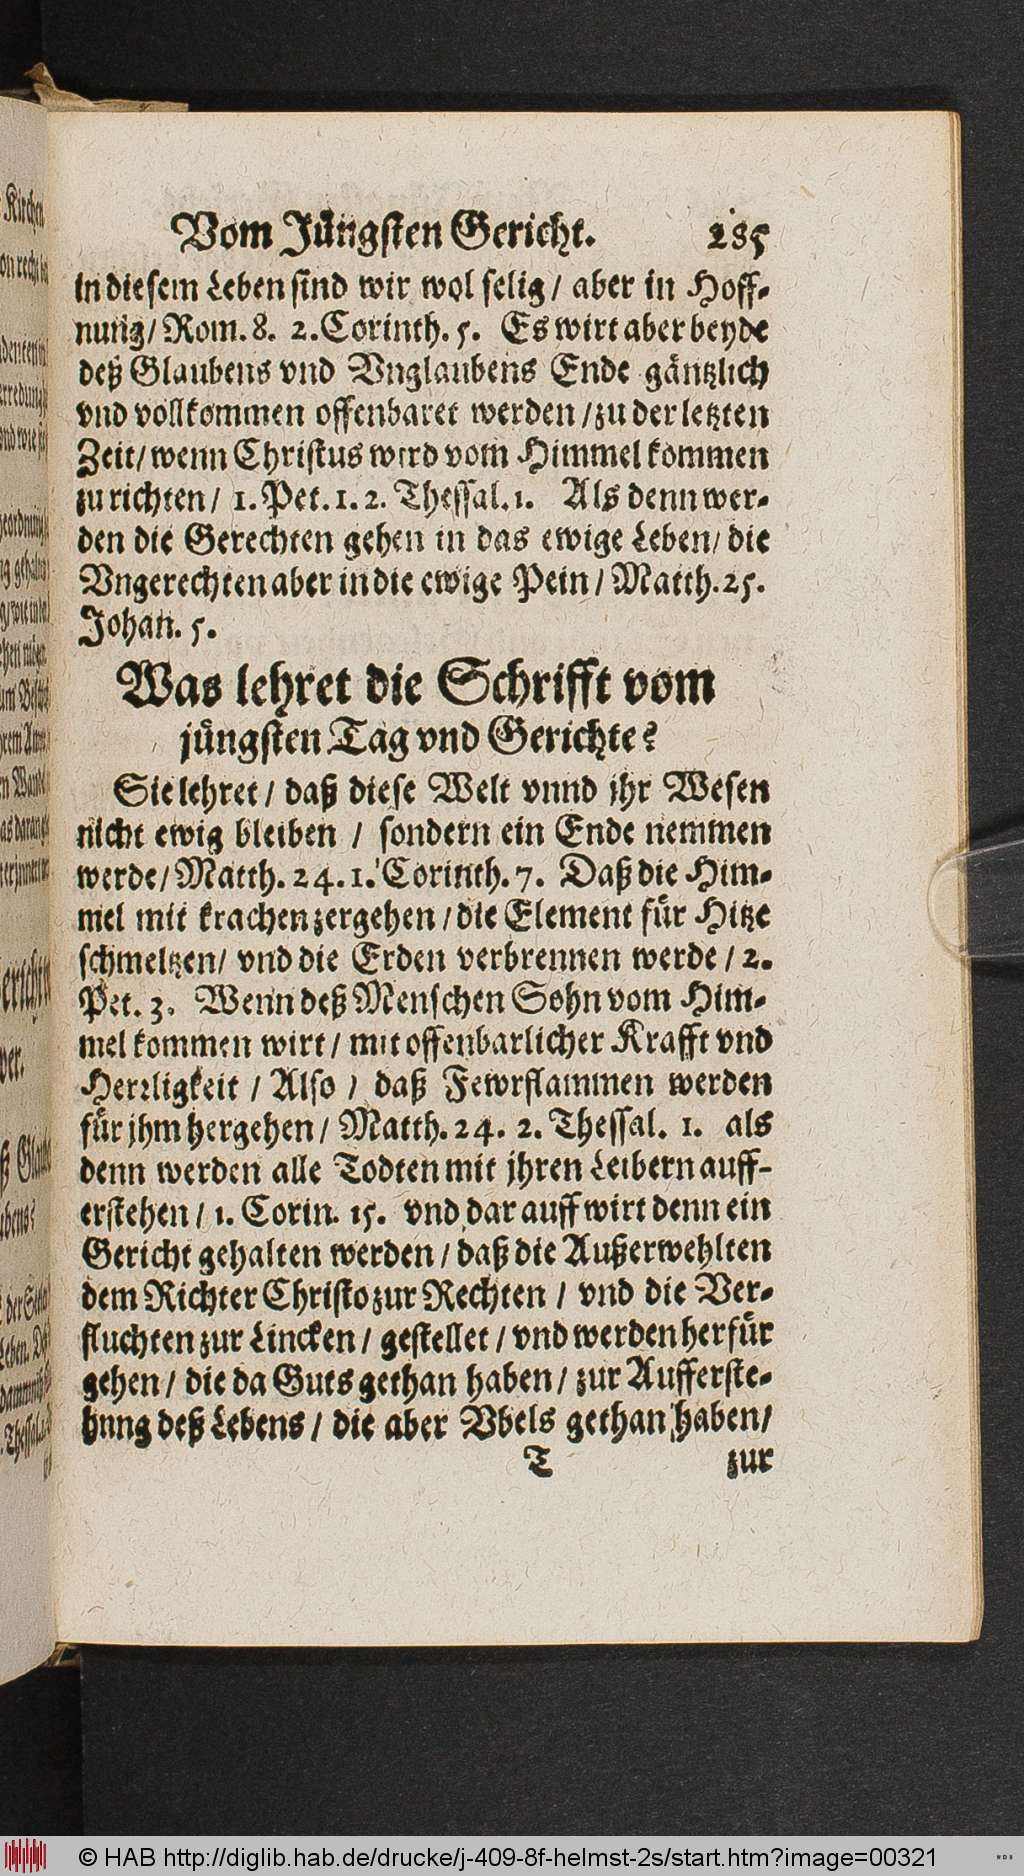 Vom Jüngsten Gericht. 285
in diesem Leben sind wir wol selig / aber in Hoff-
nung / Rom. 8. 2. Corinth. 5. Es wirt aber beyde
deß Glaubens vnd Vnglaubens Ende gäntzlich
vnd vollkommen offenbaret werden / zu der letzten
Zeit / wenn Christus wird vom Himmel kommen
zu richten / 1. Pet. 1. 2. Thessal. 1. Als denn wer-
den die Gerechten gehen in das ewige Leben / die
Vngerechten aber in die ewige Pein / Matth. 25.
Johan. 5.
Was lehret die Schrifft vom
jüngsten Tag vnd Gerichte?
Sie lehret / daß diese Welt vnnd jhr Wesen
nicht ewig bleiben / sondern ein Ende nemmen
werde / Matth. 24. 1. Corinth. 7. Daß die Him-
mel mit krachen zergehen / die Element für Hitze
schmeltzen / vnd die Erden verbrennen werde / 2.
Pet. 3. Wenn deß Menschen Sohn vom Him-
mel kommen wirt / mit offenbarlicher Krafft vnd
Herrligkeit / Also / daß Fewrflammen werden
für jhm hergehen / Matth. 24. 2. Thessal. 1. als
denn werden alle Todten mit jhren Leibern auff-
erstehen / 1. Corin. 15. vnd dar auff wirt denn ein
Gericht gehalten werden / daß die Außerwehlten
dem Richter Christo zur Rechten / vnd die Ver-
fluchten zur Lincken / gestellet / vnd werden herfür
gehen / die da Guts gethan haben / zur Aufferste-
hung deß Lebens / die aber Vbels gethan haben /
T zur
© HAB http://diglib.hab.de/drucke/j-409-8f-helmst-2s/start.htm?image=00321